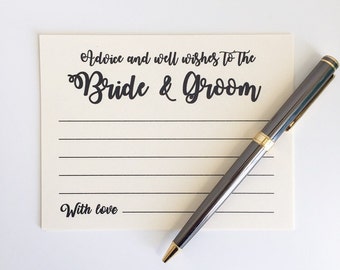 Advice and well wishes to the
Bride & Groom
With love